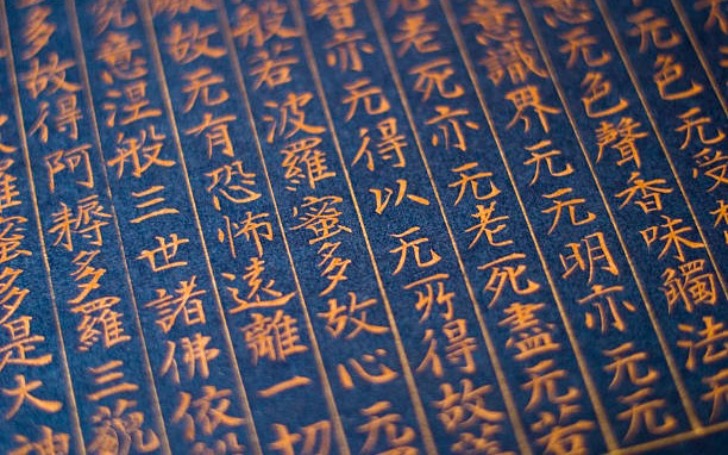 无色无受
无色聲香味觸法无
意識界无无明亦无无
无老死亦无老死盡无若
智亦无得以无所得故
般若波羅蜜多故心无
故无有恐怖遠離一切
竟涅般三世諸佛依般
多故得阿耨多羅三藐
羅蜜多是大神